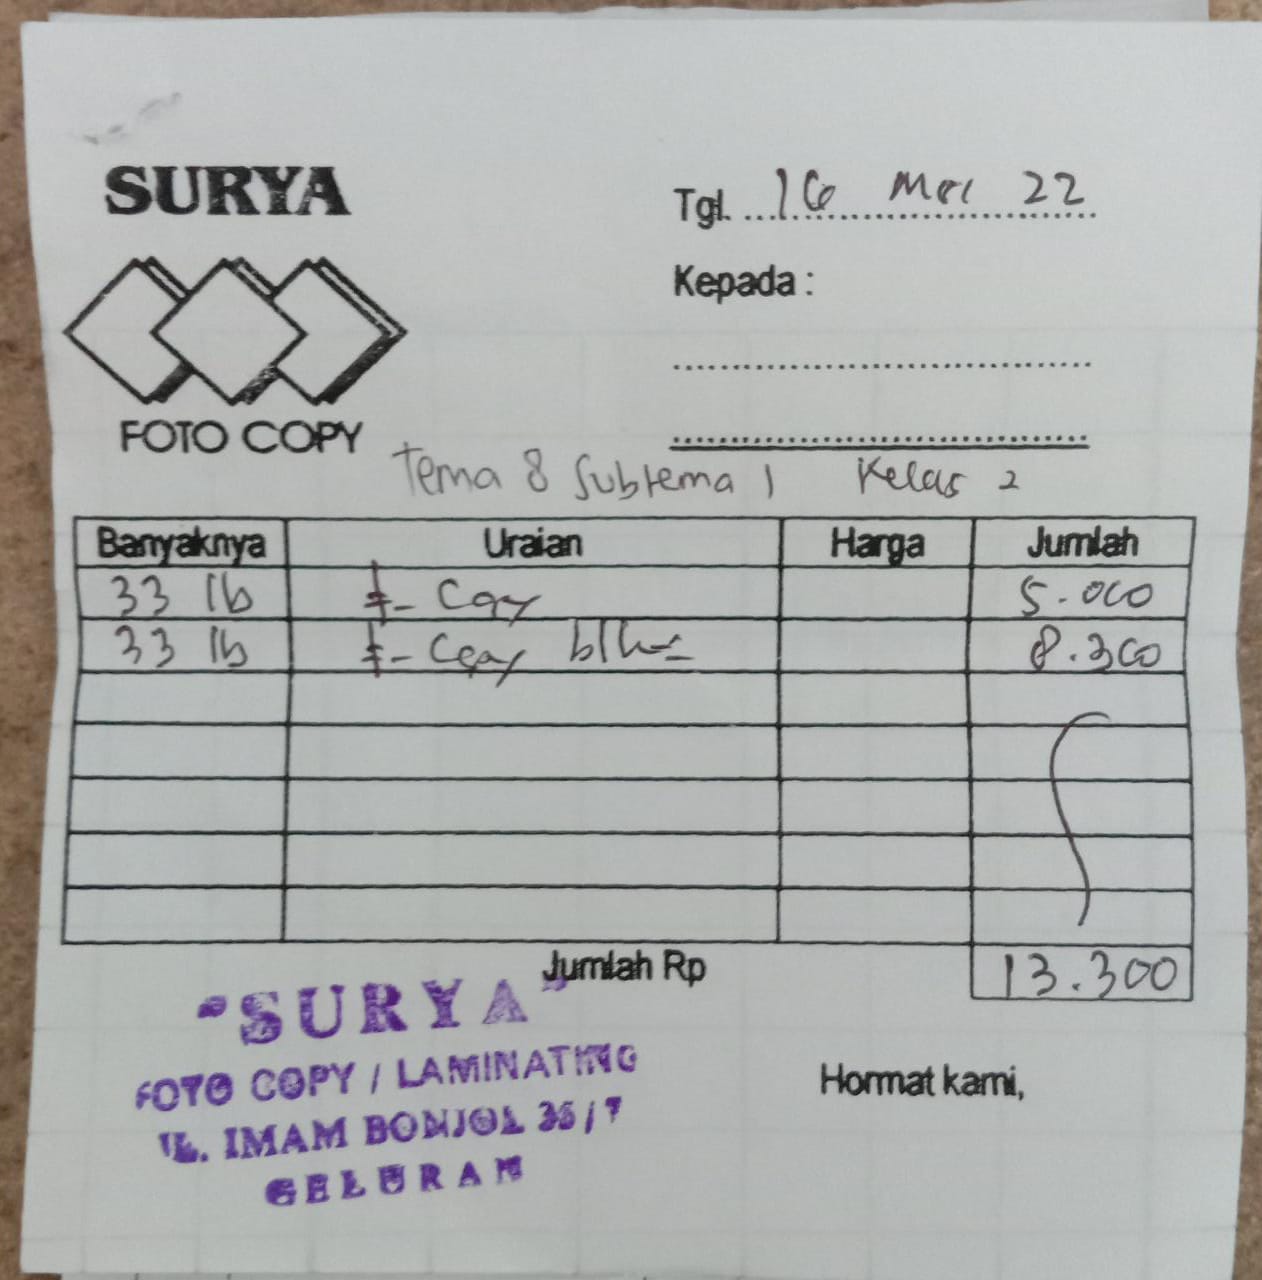 SURYA
FOTO COPY
Tgl. 16 Mei 22
Kepada :
Tema 8 Subtema 1 Kelas 2
Banyaknya Uraian Harga Jumlah
33 lb Copy 5.000
33 lb Copy 8.300
Jumlah Rp 13.300
"SURYA"
FOTO COPY / LAMINATING
JL. IMAM BONJOL 36/7
GELURAN
Hormat kami,